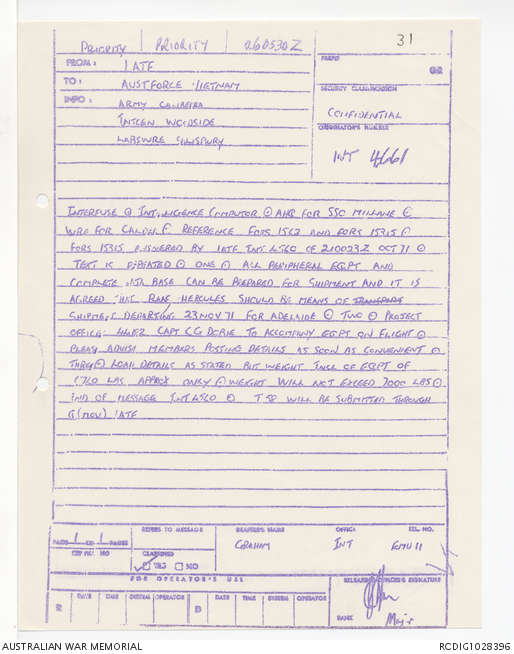 PRIORITY PRIORITY 260530Z 31
FROM: 1 ATF
TO: AUSTFORCE VIETNAM
SECURITY CLASSIFICATION
INFO: ARMY CANBERRA
CONFIDENTIAL
INTCEN WOODSIDE
ORIGINATOR'S NUMBER
INT 4661
INTERFUSE ⊙ INTELLIGENCE COMPUTOR ⊙ AHQ FOR SSO MILLANE
REFERENCE FORS 1562 AND FORS 15315
FORS 15315 ANSWERED BY 1ATF INT 4560 OF 210023Z OCT 71 ⊙
TEXT IS REPEATED ⊙ ONE ⊙ ALL PERIPHERAL EQPT AND
COMPLETE DATA BASE CAN BE PREPARED FOR SHIPMENT AND IT IS
AGREED THAT RAAF HERCULES SHOULD BE MEANS OF TRANSPORT
SHIPMENT DEPARTING 23 NOV 71 FOR ADELAIDE ⊙ TWO ⊙ PROJECT
OFFICER CAPT CG TO ACCOMPANY EQPT ON FLIGHT ⊙
PLEASE ADVISE MEMBERS POSTING DETAILS AS SOON AS CONVENIENT ⊙
THREE ⊙ LOAD DETAILS AS STATED BUT WEIGHT INCL OF EQPT OF
LBS APPROX ONLY ⊙ WEIGHT WILL NOT EXCEED 7000 LBS ⊙
END OF MESSAGE INT 4560 ⊙ WILL BE SUBMITTED THROUGH
G(MOV) 1ATF
PAGE 1 OF 1 PAGES
REFERS TO MESSAGE
DRAFTER'S NAME
OFFICE
TEL. NO.
GRAHAM INT EMU 11
CLASSIFIED
YES NO
FOR OPERATOR'S USE
RELEASING OFFICER'S SIGNATURE
R DATE TIME SYSTEM OPERATOR D DATE TIME SYSTEM OPERATOR
RANK Major
AUSTRALIAN WAR MEMORIAL RCDIG1028396